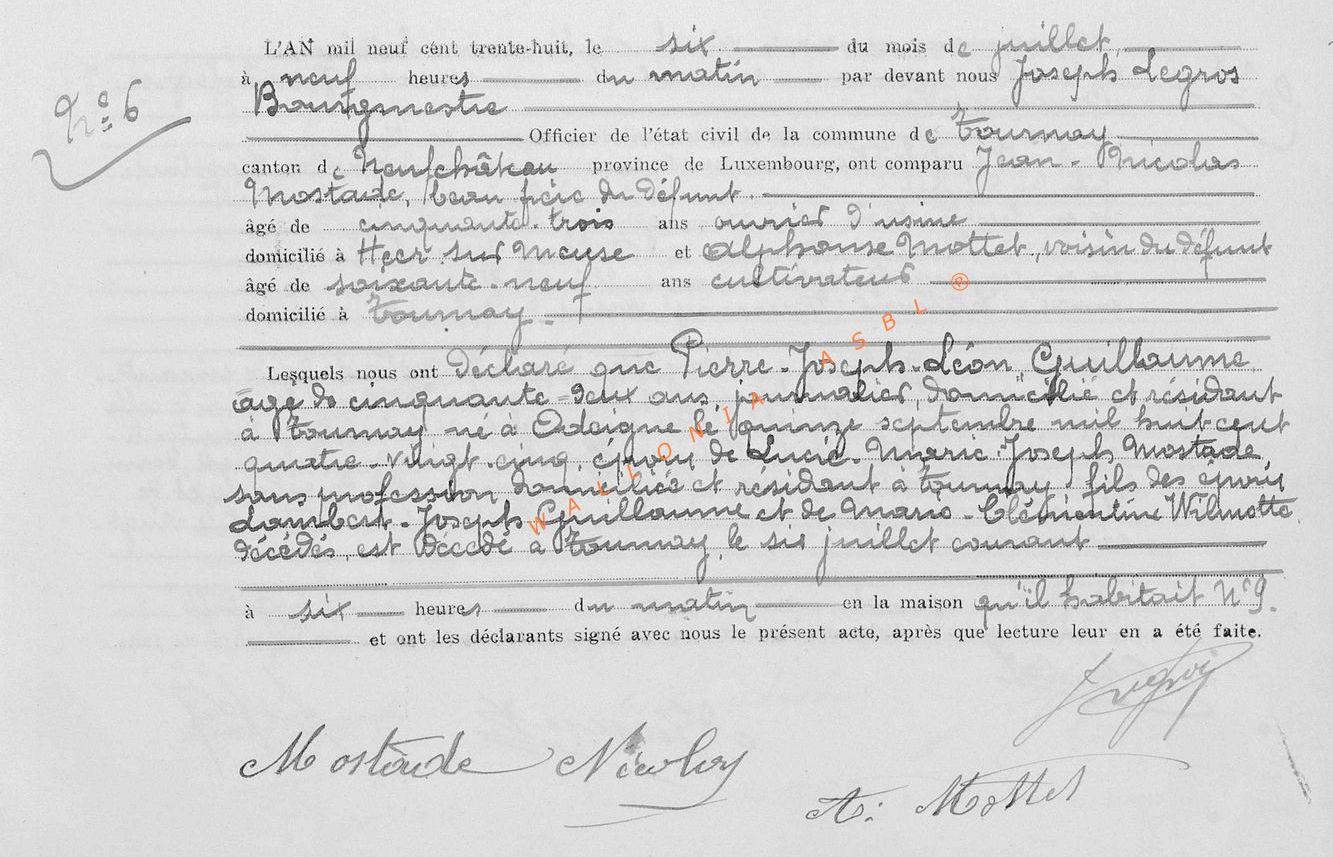 L'AN mil neuf cent trente-huit, le six du mois de juillet,
à neuf heures du matin par devant nous Joseph Legros
Bourgmestre
Nº 6
Officier de l'état civil de la commune de Tournay
canton de Neufchâteau province de Luxembourg, ont comparu Jean-Nicolas
Mostade, beau frère du défunt
âgé de cinquante-trois ans ouvrier d'usine
domicilié à Heer sur Meuse et Alphonse Mottet, voisin du défunt
âgé de soixante-neuf ans cultivateur
domicilié à Tournay.
Lesquels nous ont déclaré que Pierre-Joseph-Léon Guillaume
âgé de cinquante-deux ans, journalier, domicilié et résidant
à Tournay né à Odeigne le quinze septembre mil huit cent
quatre-vingt-cinq, époux de Lucie-Marie-Joseph Mostade,
sans profession, domiciliée et résidant à Tournay, fils des époux
Lambert-Joseph Guillaume et de Marie-Clémentine Wilmotte
décédés, est décédé à Tournay, le six juillet courant
à six heures du matin en la maison qu'il habitait Nº 9.
et ont les déclarants signé avec nous le présent acte, après que lecture leur en a été faite.
WALLONIA ASBL ®
Legros
Mostade Nicolas
A. Mottet